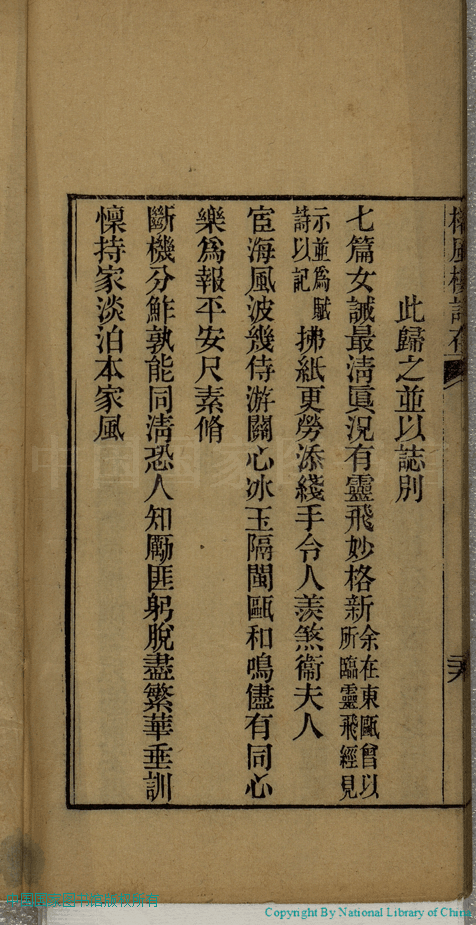 此歸之並以誌別
七篇女誡最淸眞況有靈飛妙格新余在東甌曾以所臨靈飛經見
示並爲賦詩以記拂紙更勞添綫手令人羨煞衞夫人
宦海風波幾侍游關心冰玉隔閩甌和鳴儘有同心
樂爲報平安尺素脩
斷機分鮓孰能同淸恐人知勵匪躬脫盡繁華垂訓
懍持家淡泊本家風
Copyright By National Library of China